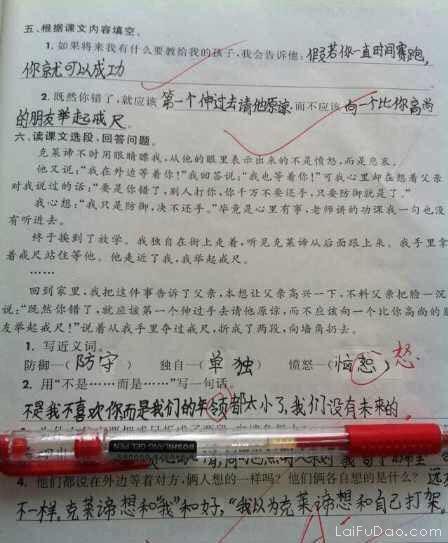 五、根据课文内容填空。
1. 如果将来我有什么要教给我的孩子,我会告诉他:但若你一直时间赛跑,
你就可以成功
2. 既然你错了,就应该第一个伸过去请他原谅而不应该向一个比你高尚
的朋友举起戒尺。
六、读课文选段,回答问题。
克莱谛不时用眼睛瞟我,从他的眼里表示出来的不是愤怒,而是悲哀。
他又说:“我在外边等着你!”我回答说:“我也等着你!”可我心里却在想着父亲
对我说过的话:“要是你错了,别人打你,你千万不要还手,只要防御就是了。”
我心想:“我只是防御,决不还手。”毕竟是心里有事,老师讲的功课我一句也没
有听进去。
终于挨到了放学。我独自在街上走着,听见克莱谛从后面跟上来。我手里拿
着戒尺站住等他。他走近了我,我举起戒尺。
……
回到家里,我把这件事告诉了父亲,本想让父亲高兴一下,不料父亲把脸一沉
说:“既然你错了,就应该第一个伸过手去请他原谅,而不应该向一个比你高尚的朋
友举起戒尺!”说着从我手里夺过戒尺,折成了两段,向墙角扔去。
1. 写近义词。
防御—(防守) 独自—(单独) 愤怒—(恼怨) 怒
2. 用“不是……而是……”写一句话。
不是我不喜欢你而是我们的年领都太小了,我们没有未来的
4. 他们都说在外边等着对方,俩人想的一样吗?他们俩各自想的是什么?
不一样。克莱谛想和“我”和好,“我以为克莱谛想和自己打架。
LaiFuDao.com